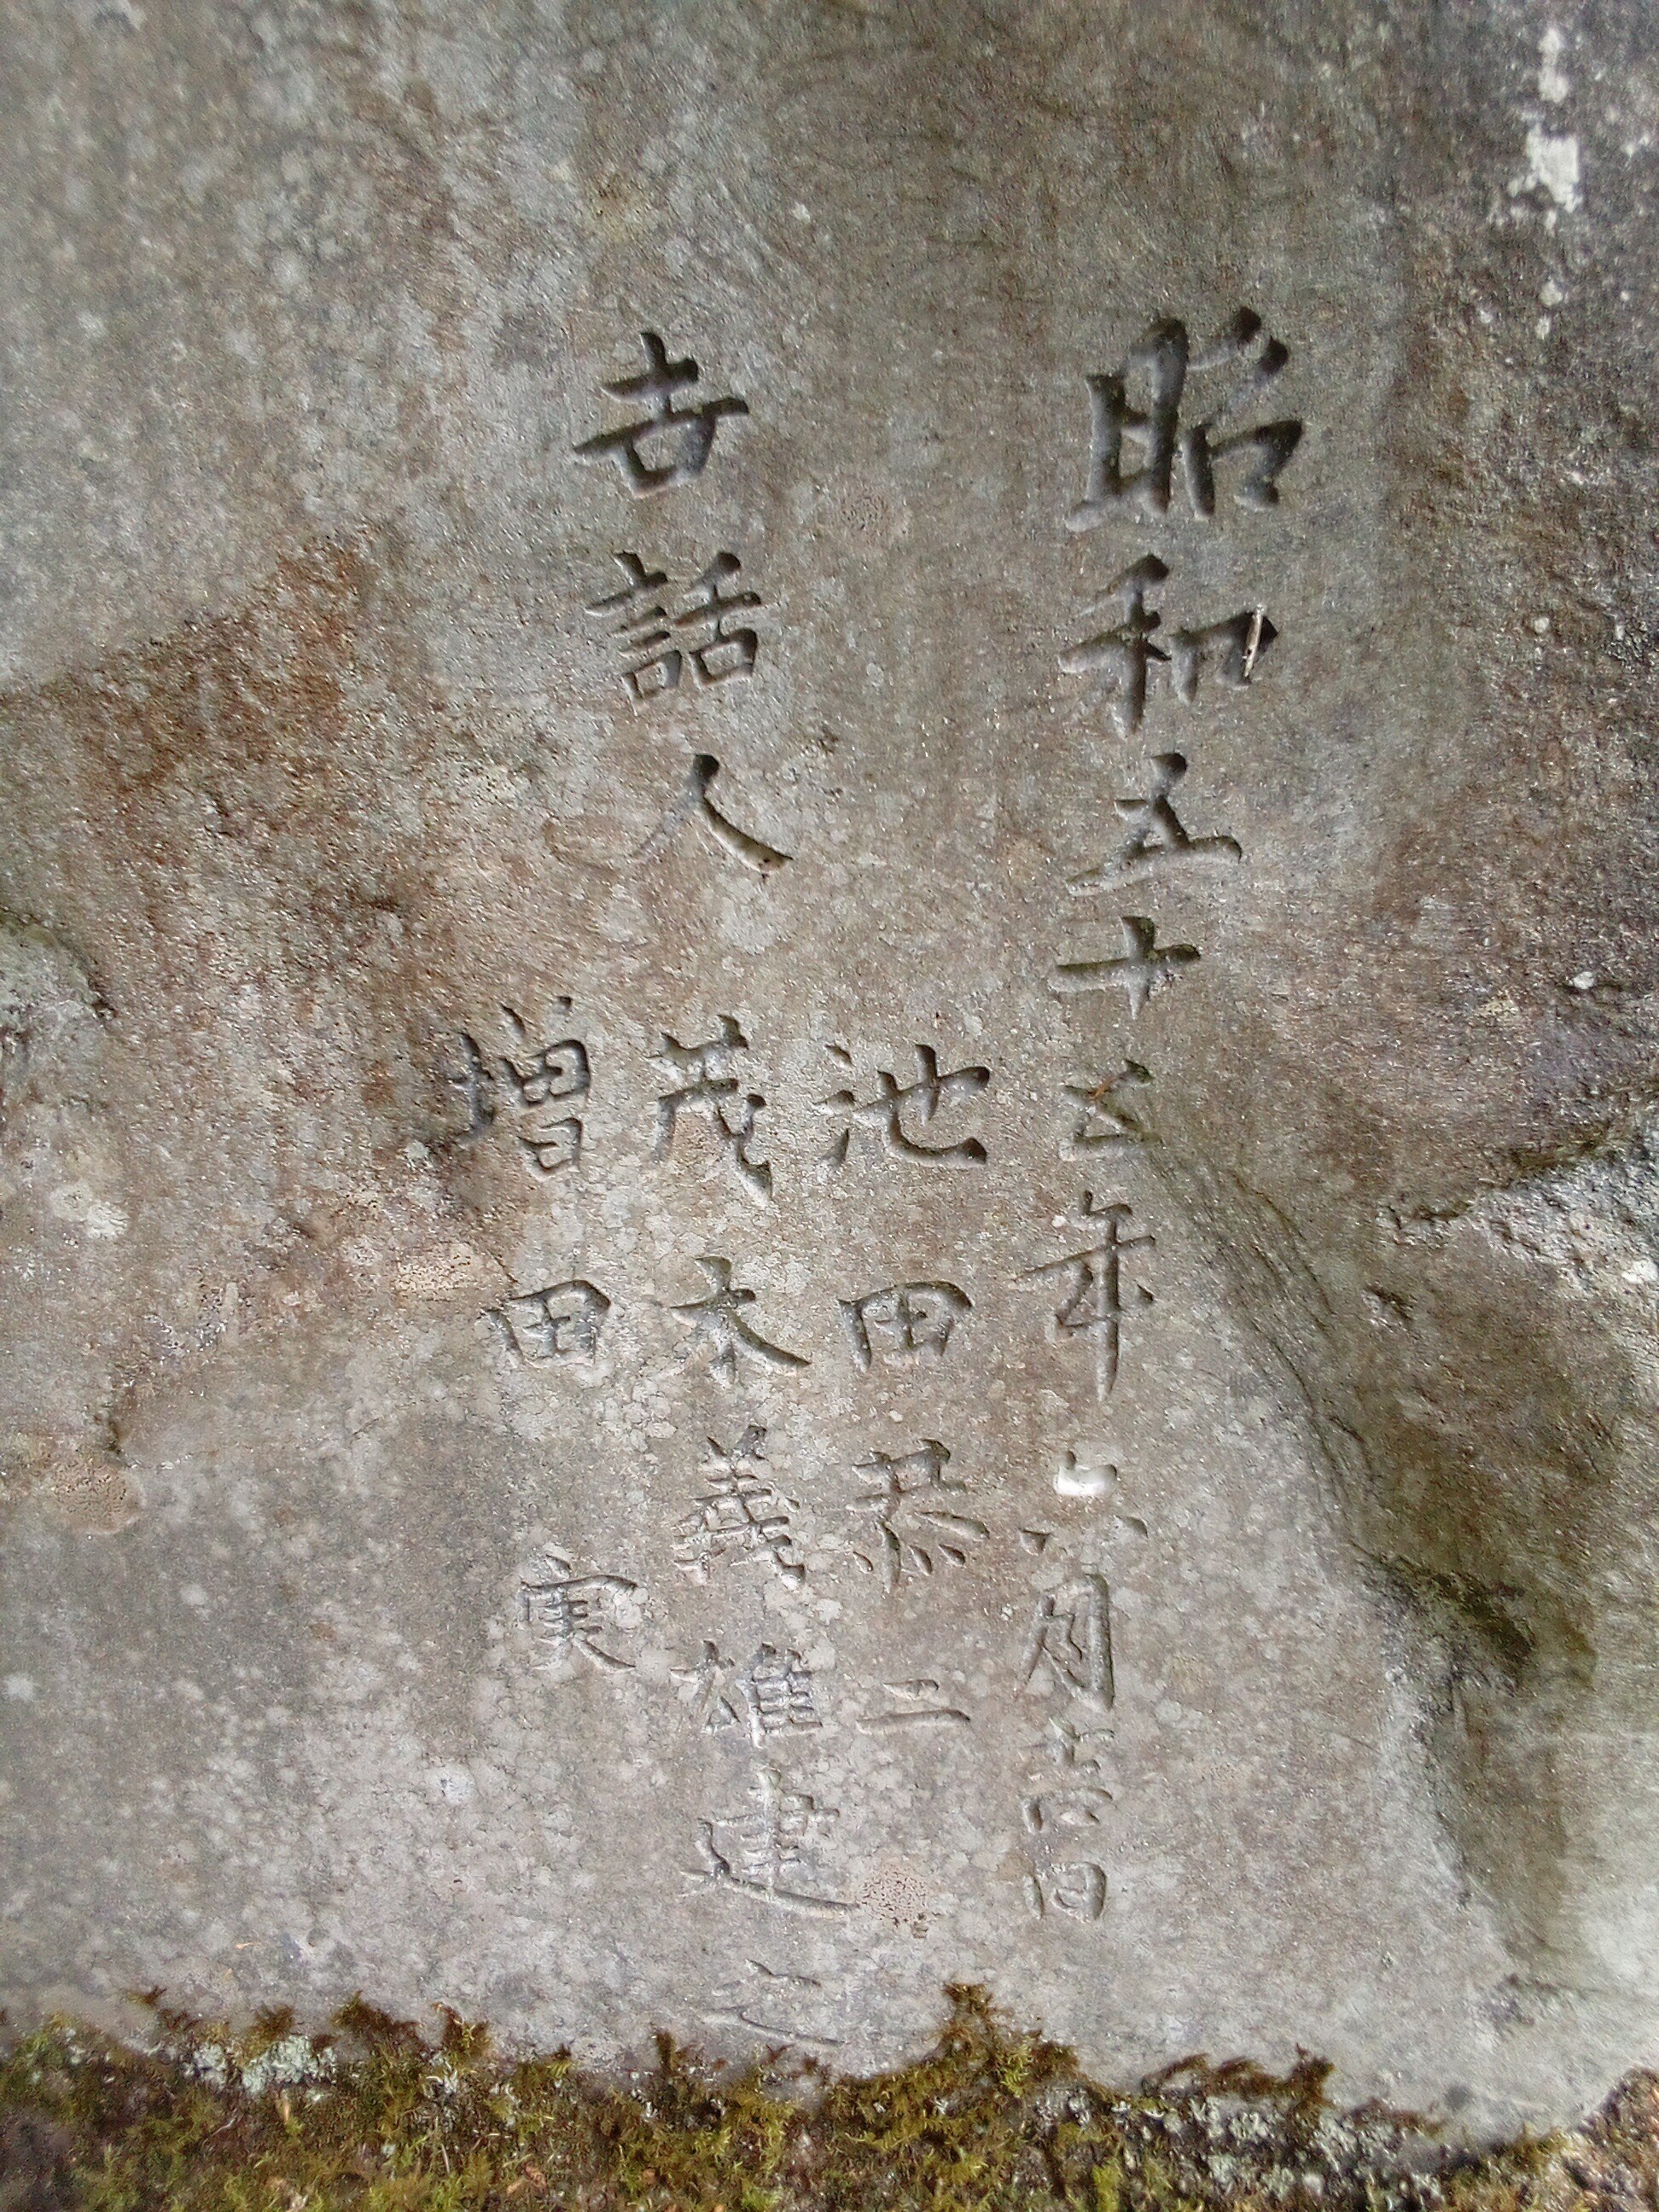 昭和五十五年六月吉日
世話人
池田恭二
茂木義雄建之
増田実